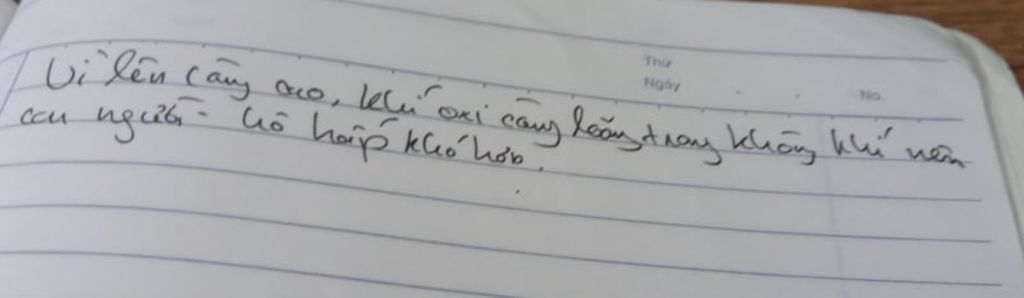 Thứ
Ngày
No.
Vì lên càng cao, khí oxi càng loãng trong không khí nên
con người hô hấp khó hơn.